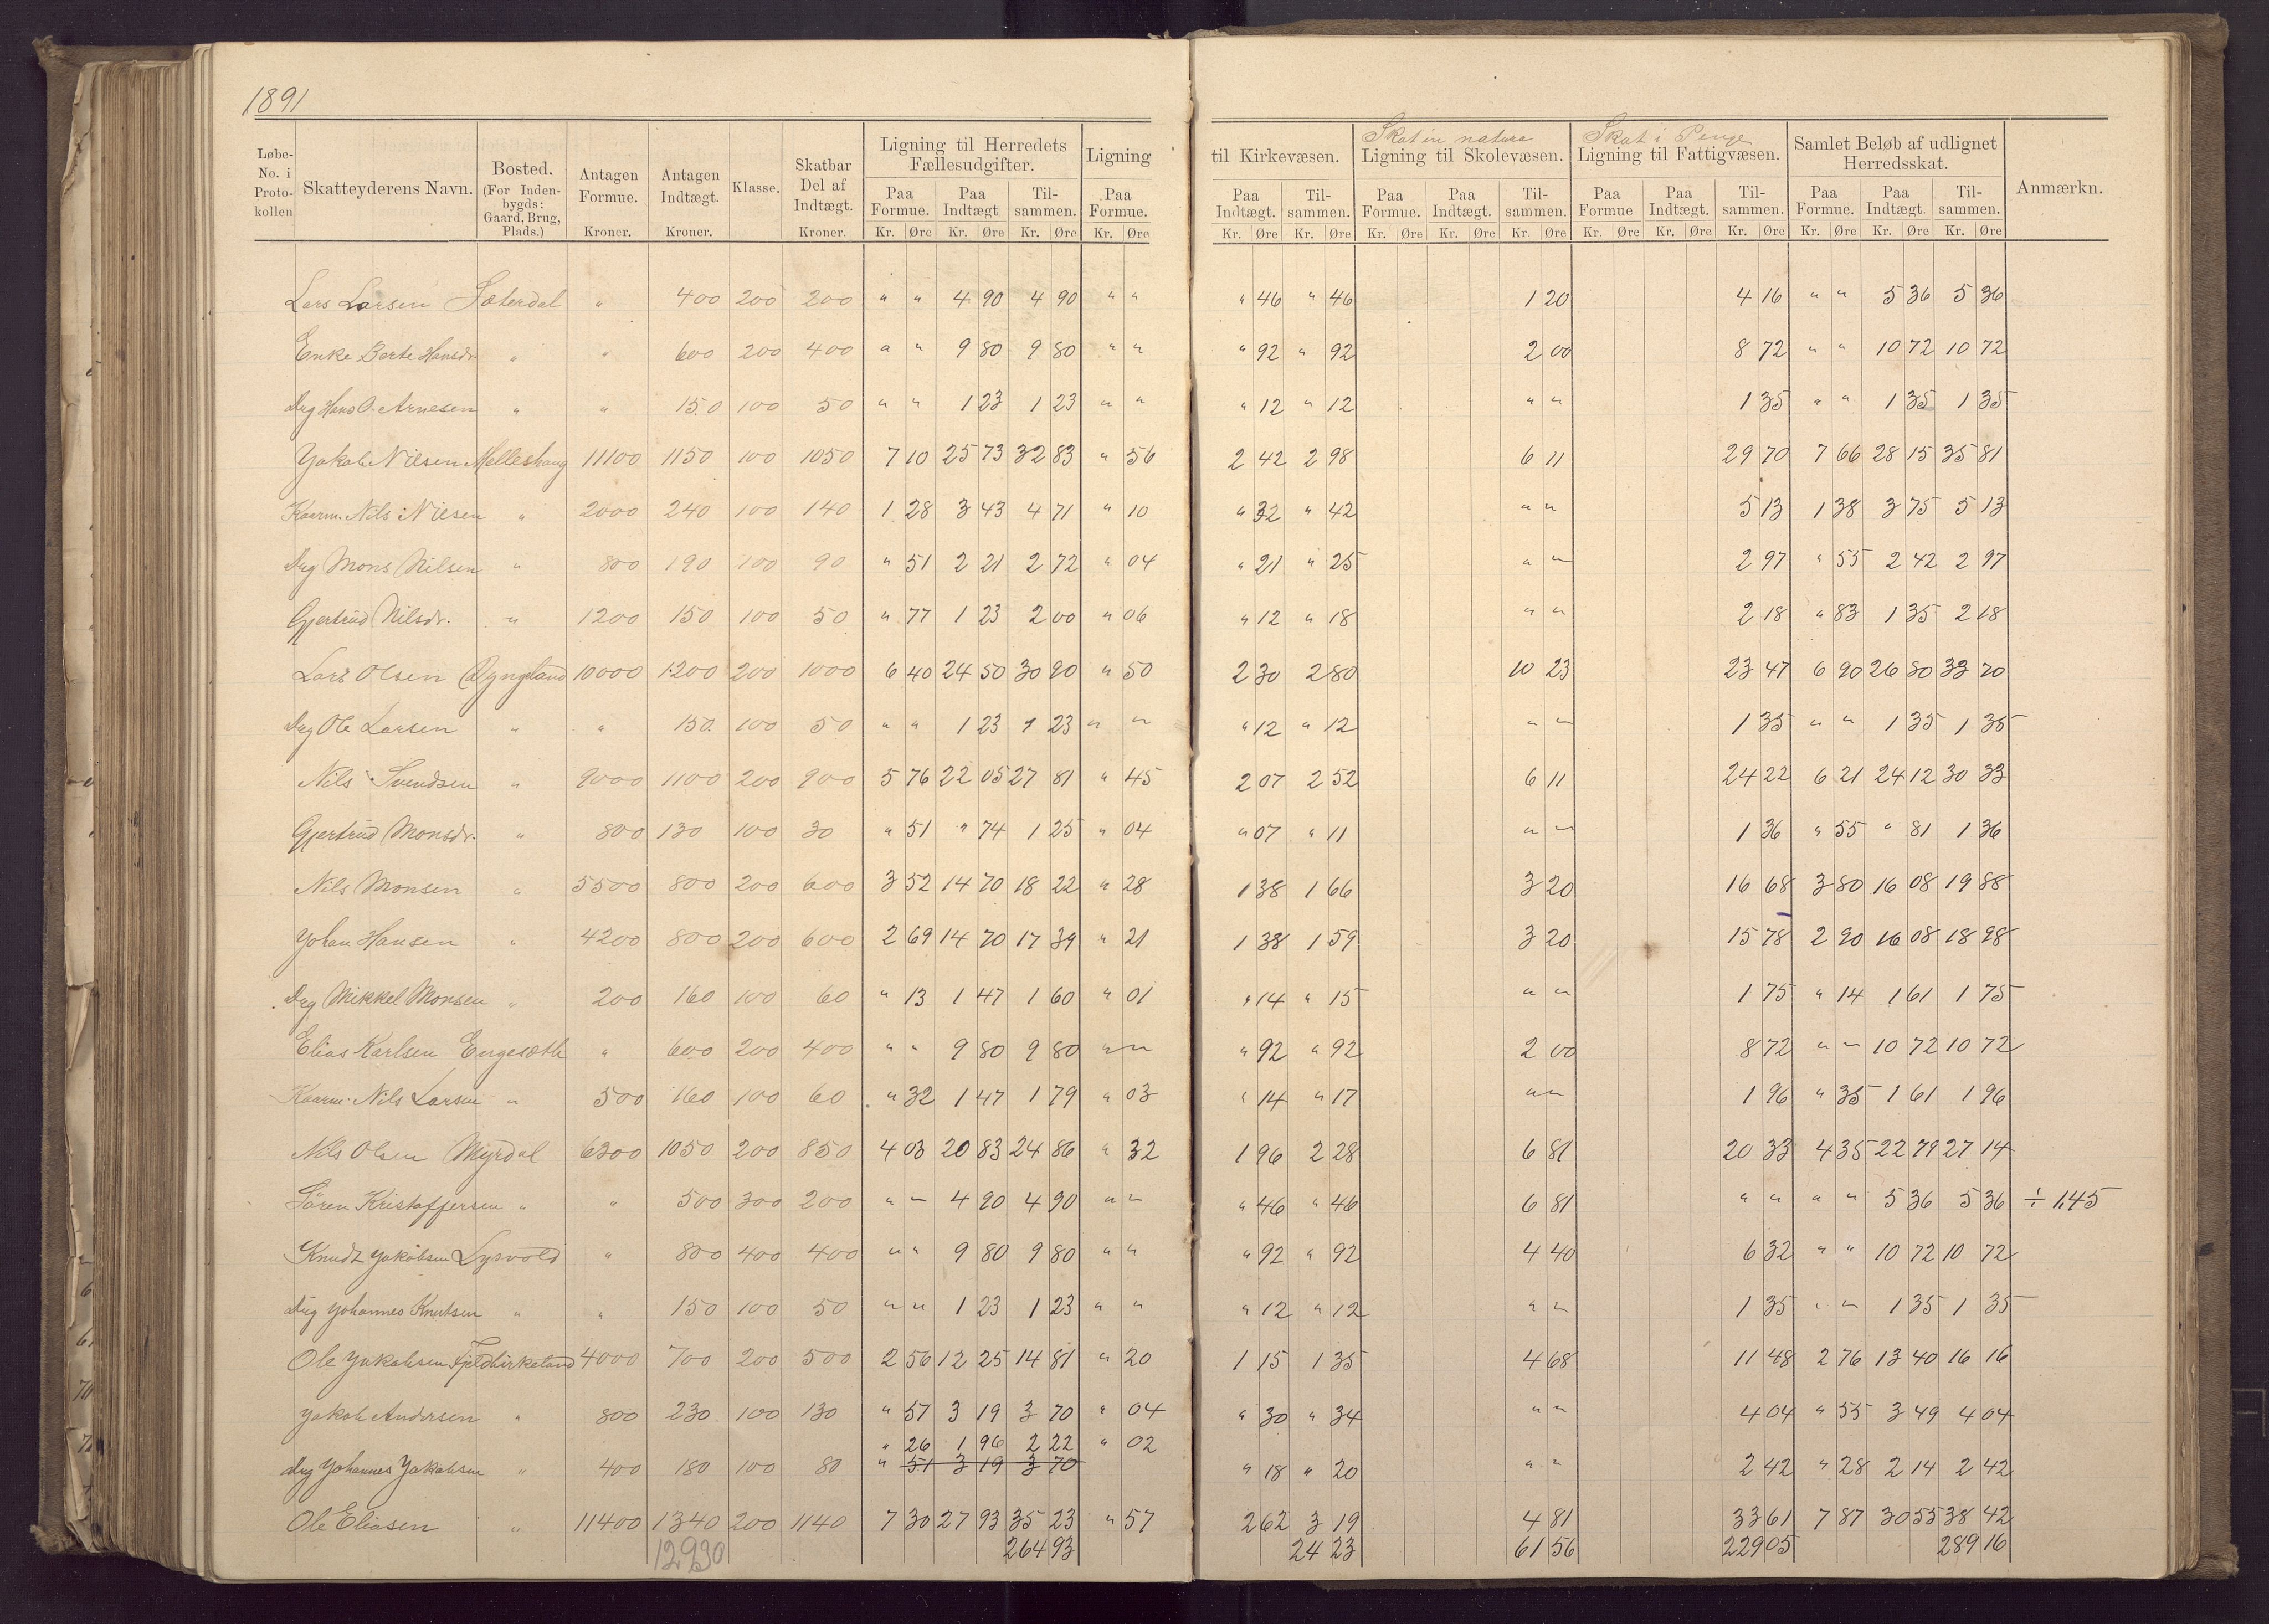 1891
Løbe-No. i Proto-kollen
Skatteyderens Navn.
Bosted. (For Inden-bygds: Gaard, Brug, Plads.)
Antagen Formue. Kroner.
Antagen Indtægt. Kroner.
Klasse.
Skatbar Del af Indtægt. Kroner.
Ligning til Herredets Fællesudgifter.
Paa Formue. Paa Indtægt Til-sammen.
Kr. Øre Kr. Øre Kr. Øre
Ligning
Paa Formue.
Kr. Øre
til Kirkevæsen.
Paa Indtægt. Til-sammen.
Kr. Øre Kr. Øre
Skat in natura
Ligning til Skolevæsen.
Paa Formue. Paa Indtægt. Til-sammen.
Kr. Øre Kr. Øre Kr. Øre
Skat i Penge
Ligning til Fattigvæsen.
Paa Formue Paa Indtægt. Til-sammen.
Kr. Øre Kr. Øre Kr. Øre
Samlet Beløb af udlignet Herredsskat.
Paa Formue. Paa Indtægt. Til-sammen.
Kr. Øre Kr. Øre Kr. Øre
Anmærkn.
Lars Larsen Sæterdal " 400 200 200 " " 4 90 4 90 " " " 46 " 46 1 20 4 16 " " 5 36 5 36
Enke Berte Hansdr. " " 600 200 400 " " 9 80 9 80 " " " 92 " 92 2 00 8 72 " " 10 72 10 72
Drg Hans O. Arnesen " " 150 100 50 " " 1 23 1 23 " " " 12 " 12 " " 1 35 " " 1 35 1 35
Yakob Nilsen Melleshaug 11100 1150 100 1050 7 10 25 73 32 83 " 56 2 42 2 98 6 11 29 70 7 66 28 15 35 81
Kaarm. Nils Nilsen " 2000 240 100 140 1 28 3 43 4 71 " 10 " 32 " 42 " " 5 13 1 38 3 75 5 13
Drg Mons Nilsen " 800 190 100 90 " 51 2 21 2 72 " 04 " 21 " 25 " " 2 97 " 55 2 42 2 97
Gjertrud Nilsdr. " 1200 150 100 50 " 77 1 23 2 00 " 06 " 12 " 18 " " 2 18 " 83 1 35 2 18
Lars Olsen Dyngeland 10000 1200 200 1000 6 40 24 50 30 90 " 50 2 30 2 80 10 23 23 47 6 90 26 80 33 70
Drg Ole Larsen " " 150 100 50 " " 1 23 1 23 " " " 12 " 12 " " 1 35 " " 1 35 1 35
Nils Svendsen " 9000 1100 200 900 5 76 22 05 27 81 " 45 2 07 2 52 6 11 24 22 6 21 24 12 30 33
Gjertrud Monsdr. " 800 130 100 30 " 51 " 74 1 25 " 04 " 07 " 11 " " 1 36 " 55 " 81 1 36
Nils Monsen " 5500 800 200 600 3 52 14 70 18 22 " 28 1 38 1 66 3 20 16 68 3 80 16 08 19 88
Yohan Hansen " 4200 800 200 600 2 69 14 70 17 39 " 21 1 38 1 59 3 20 15 78 2 90 16 08 18 98
Drg Mikkel Monsen " 200 160 100 60 " 13 1 47 1 60 " 01 " 14 " 15 " " 1 75 " 14 1 61 1 75
Elias Karlsen Engesæth " 600 200 400 " " 9 80 9 80 " " " 92 " 92 2 00 8 72 " " 10 72 10 72
Kaarm. Nils Larsen " 500 160 100 60 " 32 1 47 1 79 " 03 " 14 " 17 " " 1 96 " 35 1 61 1 96
Nils Olsen Myrdal 6300 1050 200 850 4 03 20 83 24 86 " 32 1 96 2 28 6 81 20 33 4 35 22 79 27 14
Sören Kristoffersen " " 500 300 200 " " 4 90 4 90 " " " 46 " 46 6 81 " " " " 5 36 5 36 ÷ 1,45
Knudt Yakobsen Lysvold " 800 400 400 " " 9 80 9 80 " " " 92 " 92 4 40 6 32 " " 10 72 10 72
Drg Yohannes Knutsen " " 150 100 50 " " 1 23 1 23 " " " 12 " 12 " " 1 35 " " 1 35 1 35
Ole Yakobsen Fjeldbirkeland 4000 700 200 500 2 56 12 25 14 81 " 20 1 15 1 35 4 68 11 48 2 76 13 40 16 16
Yakob Andersen " 800 230 100 130 " 51 3 19 3 70 " 04 " 30 " 34 " " 4 04 " 55 3 49 4 04
" 26 1 96 2 22 " 02
Drg Yohannes Yakobsen " 400 180 100 80 " 51 3 19 3 70 " 18 " 20 " " 2 42 " 28 2 14 2 42
Ole Eliasen " 11400 1340 200 1140 7 30 27 93 35 23 " 57 2 62 3 19 4 81 33 61 7 87 30 55 38 42
12,930 264 93 24 23 61 56 229 05 289 16